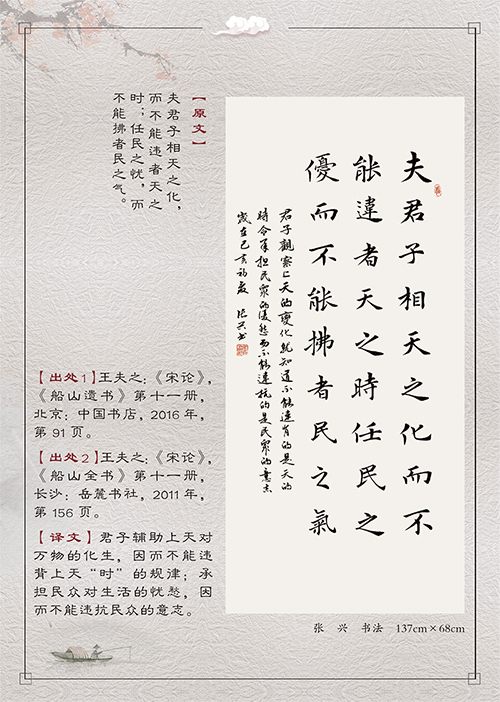 【原文】
夫君子相天之化，
而不能违者天之
时；任民之忧，而
不能拂者民之气。
夫君子相天之化而不
能違者天之時任民之
優而不能拂者民之氣
君子觀察上天的變化就知道不能違背的是天的
時令承担民眾的憂愁而不能違抗的是民眾的意志
歲在己亥初夏 张兴书
【出处1】王夫之：《宋论》，
《船山遗书》第十一册，
北京：中国书店，2016年，
第91页。
【出处2】王夫之：《宋论》，
《船山全书》第十一册，
长沙：岳麓书社，2011年，
第156页。
【译文】君子辅助上天对
万物的化生，因而不能违
背上天“时”的规律；承
担民众对生活的忧愁，因
而不能违抗民众的意志。
张 兴 书法 137cm×68cm